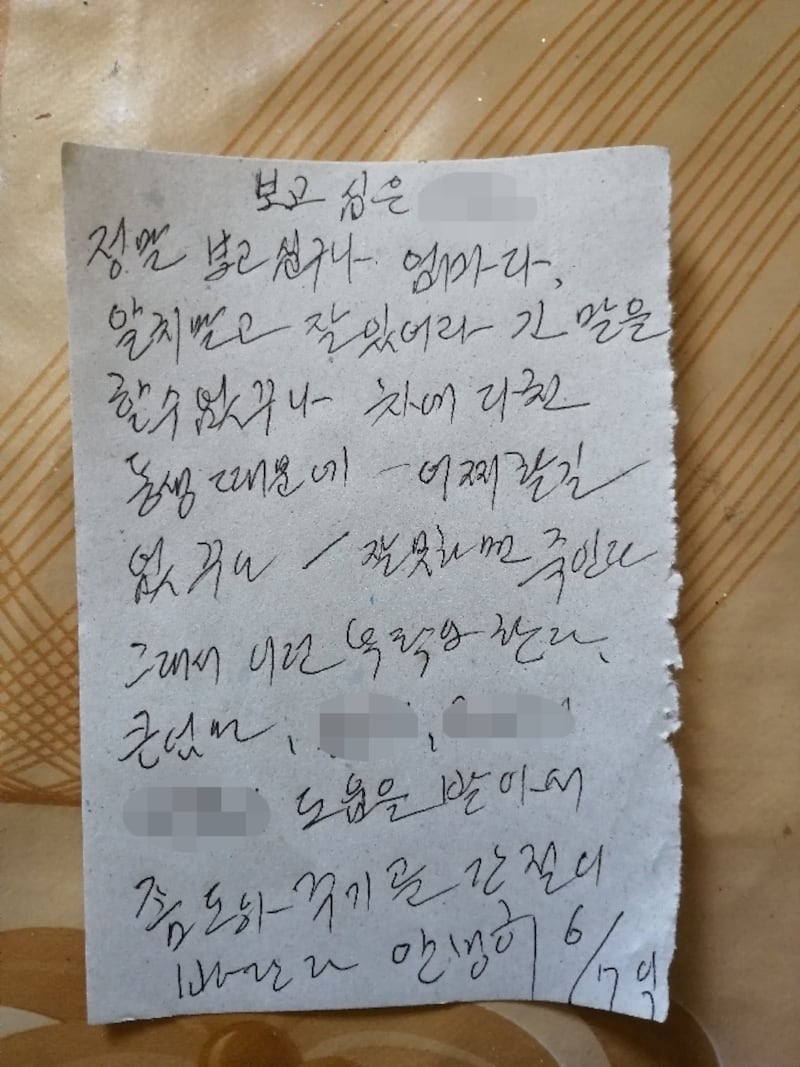 보고 싶은
정말 보고 싶구나 엄마다,
앓치말고 잘 있어라 긴 말을
할수 없꾸나 차에 다친
동생때문에 - 어찌할길
없꾸나 / 잘못하면 죽인다
그래서 이런 부탁을 한다,
큰엄마, ,
도움을 받아서
좀 도와 주기를 간절히
바란다 안녕히 6/7